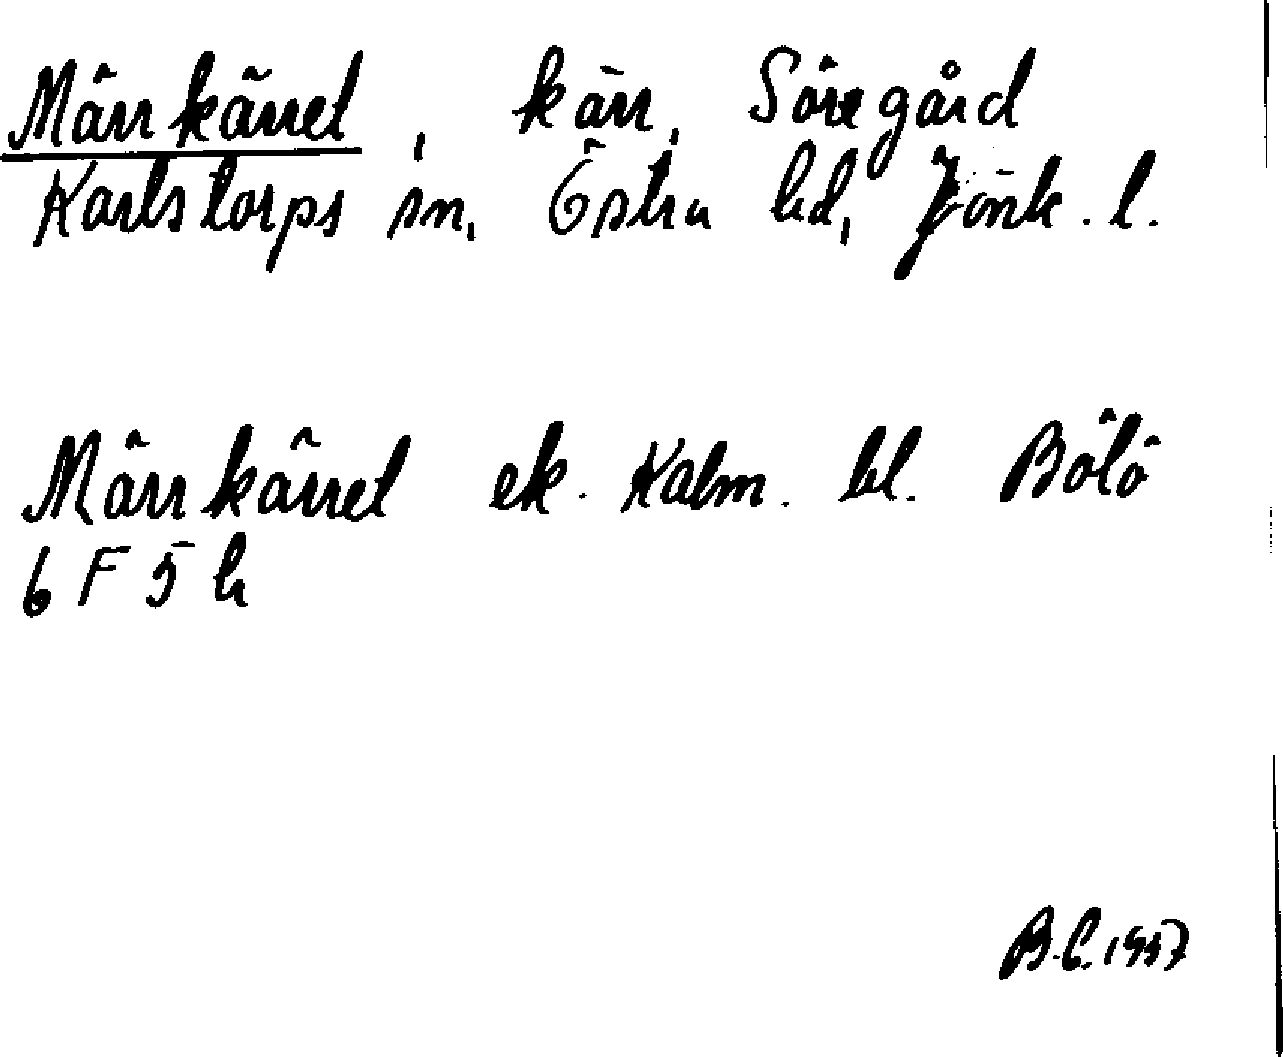 Märrkärret, kärr, Söregård
Karlstorps sn, Östra hd, Jönk. l.
Märrkärret ek. Kalm. bl. Bölö
6 F 5 h
B.C. 1957